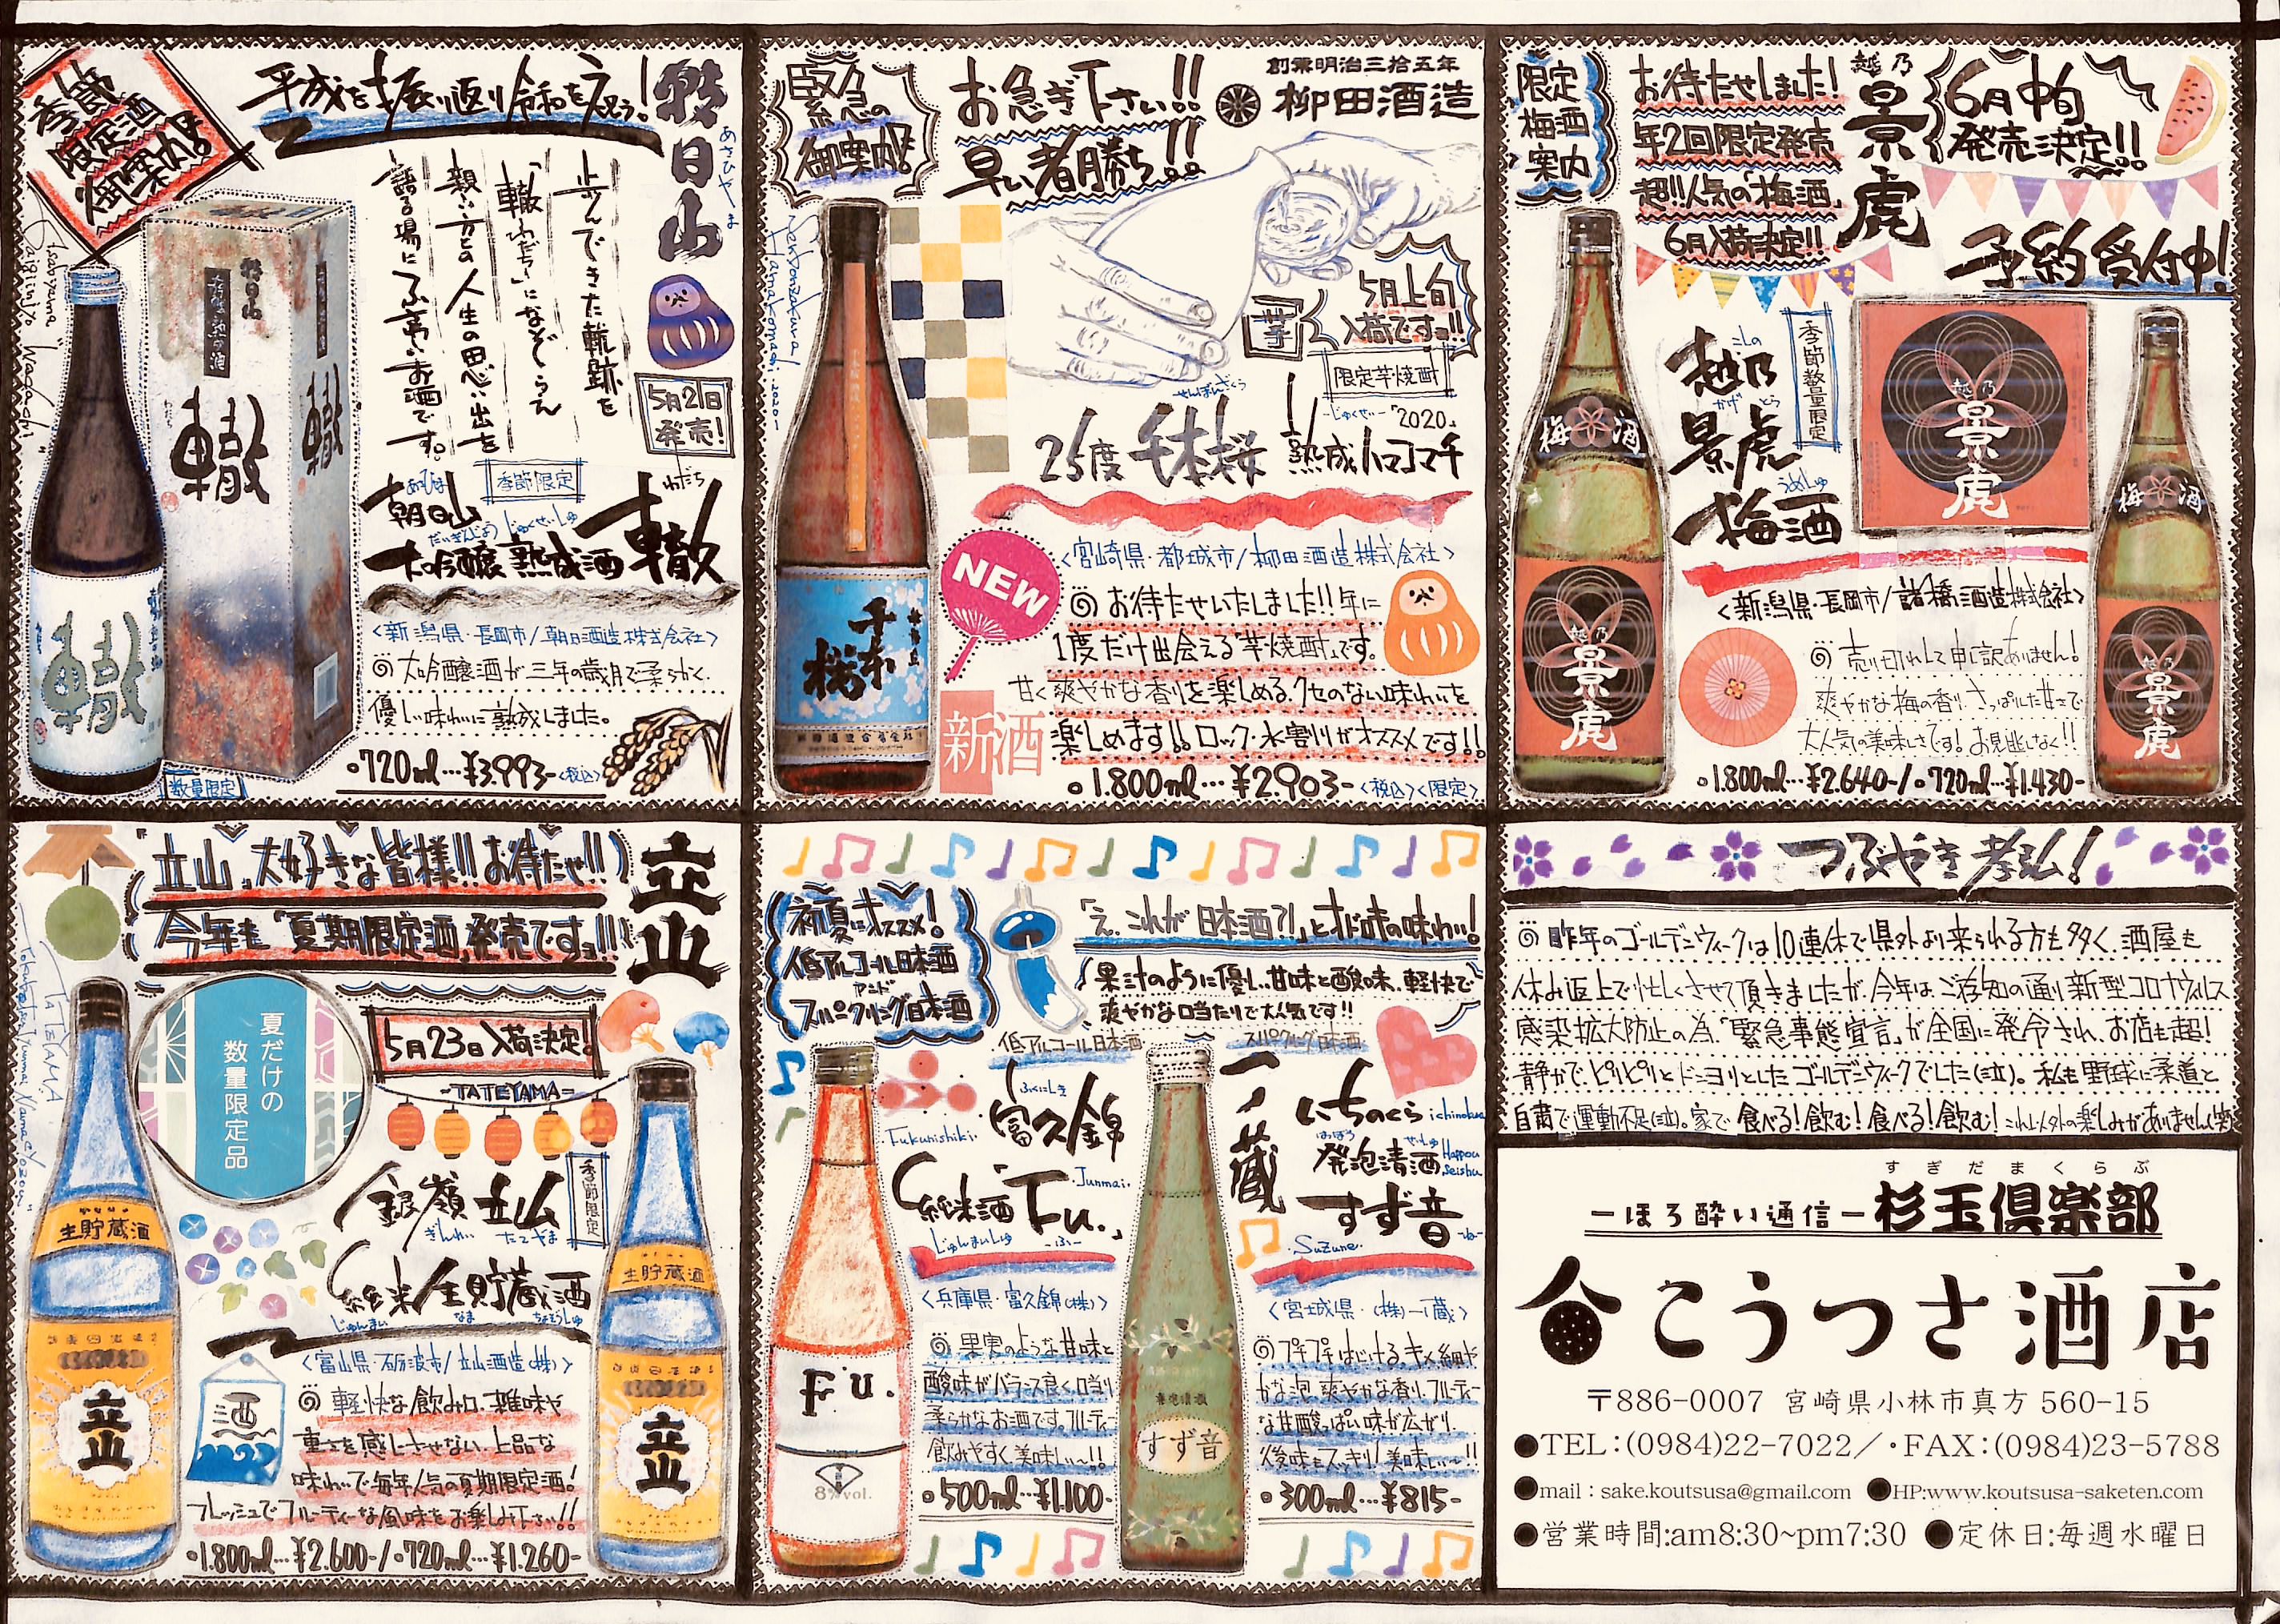 季節
限定酒
御案内!
平成を振り返り令和を祝う!
朝日山
あさひやま
歩んできた軌跡を
「轍(わだち)」になぞらえ
親しい方との人生の思い出を
語る場にふ高いお酒です。
5月21日
発売!
轍
季節限定
朝日山
大吟醸 熟成酒 轍
わだち
だいぎんじょう じゅくせいしゅ
<新潟県・長岡市/朝日酒造株式会社>
◎大吟醸酒が三年の歳月で柔らかく、
優しい味わいに熟成しました。
・720ml…¥3,993-<税込>
数量限定
緊急の
御案内!
お急ぎ下さい!!
早い者勝ち!!
創業明治三拾五年
柳田酒造
5月上旬
入荷ですョ!!
芋
限定芋焼酎
せんぼんざくら
じゅくせい
「2020」
25度 千本桜 熟成ハマコマチ
NEW
<宮崎県・都城市/柳田酒造株式会社>
◎お待たせいたしました!!年に
1度だけ出会える「芋焼酎」です。
甘く爽やかな香りを楽しめる、クセのない味わいを
楽しめます!!ロック・水割りがオススメです!!
新酒
・1.800ml…¥2903-<税込><限定>
千本桜
限定
梅酒
案内
お待たせしました!
年2回限定発売
超!!人気の「梅酒」
6月入荷決定!!
越乃
景虎
6月中旬
発売決定!!
予約受付中!
季節数量限定
こしの
越乃
かげとら
景虎
うめしゅ
梅酒
梅酒
越乃
景虎
<新潟県・長岡市/諸橋酒造株式会社>
◎売り切れして申し訳ありません!
爽やかな梅の香り、さっぱりした甘さで
大人気の美味しさです!お見逃しなく!!
・1.800ml…¥2640-/・720ml…¥1.430-
「立山」大好きな皆様!!お待たせ!!
今年も「夏期限定酒」発売ですョ!!!
立山
夏だけの
数量限定品
5月23日入荷決定!
-TATEYAMA-
季節限定
銀嶺立山
ぎんれい たてやま
純米生貯蔵酒
じゅんまい なま ちょぞうしゅ
生貯蔵酒
立山
酒
<富山県・砺波市/立山酒造(株)>
◎軽快な飲み口、雑味や
重さを感じさせない、上品な
味わいで毎年人気の夏期限定酒!
フレッシュでフルーティーな風味をお楽しみ下さい!!
・1.800ml…¥2.600-/・720ml…¥1.260-
初夏にオススメ!
低アルコール日本酒
アンド
スパークリング日本酒
「え、これが日本酒?!」とオドロキの味わい!
果汁のように優しい甘味と酸味、軽快で
爽やかな口当たりで大人気です!!
低アルコール日本酒
ふくにしき
富久錦
Fukunishiki
Junmai
純米酒「Fu.」
じゅんまいしゅ -ふ-
<兵庫県・富久錦(株)>
◎果実のような甘味と
酸味がバランス良く口当り
柔らかなお酒です。フルーティー
飲みやすく美味しい〜!!
・500ml…¥1.100-
Fu.
8%vol.
スパークリング日本酒
一ノ蔵
いちのくら ichinokura
はっぽう せいしゅ
発泡清酒
Happou
Seishu
すず音
-ね-
Suzune
<宮城県・(株)一ノ蔵>
◎プチプチはじける、キメ細や
かな泡、爽やかな香り、フルーティー
な甘酸っぱい味が広がり、
後味もスッキリ!美味しい〜!!
・300ml…¥815-
すず音
つぶやき孝弘!
◎昨年のゴールデンウィークは10連休で県外より来られる方も多く、酒屋も
休み返上で忙しくさせて頂きましたが、今年は、ご存知の通り新型コロナウィルス
感染拡大防止の為、「緊急事態宣言」が全国に発令され、お店も超!
静かで、ピリピリとドンヨリとしたゴールデンウィークでした(泣)。私も野球に柔道と
自粛で運動不足(泣)。家で食べる!飲む!食べる!飲む!これ以外の楽しみがありません(笑)
すぎだまくらぶ
-ほろ酔い通信-杉玉倶楽部
こうつさ酒店
〒886-0007 宮崎県小林市真方560-15
●TEL:(0984)22-7022/・FAX:(0984)23-5788
●mail:sake.koutsusa@gmail.com ●HP:www.koutsusa-saketen.com
●営業時間:am8:30~pm7:30 ●定休日:毎週水曜日